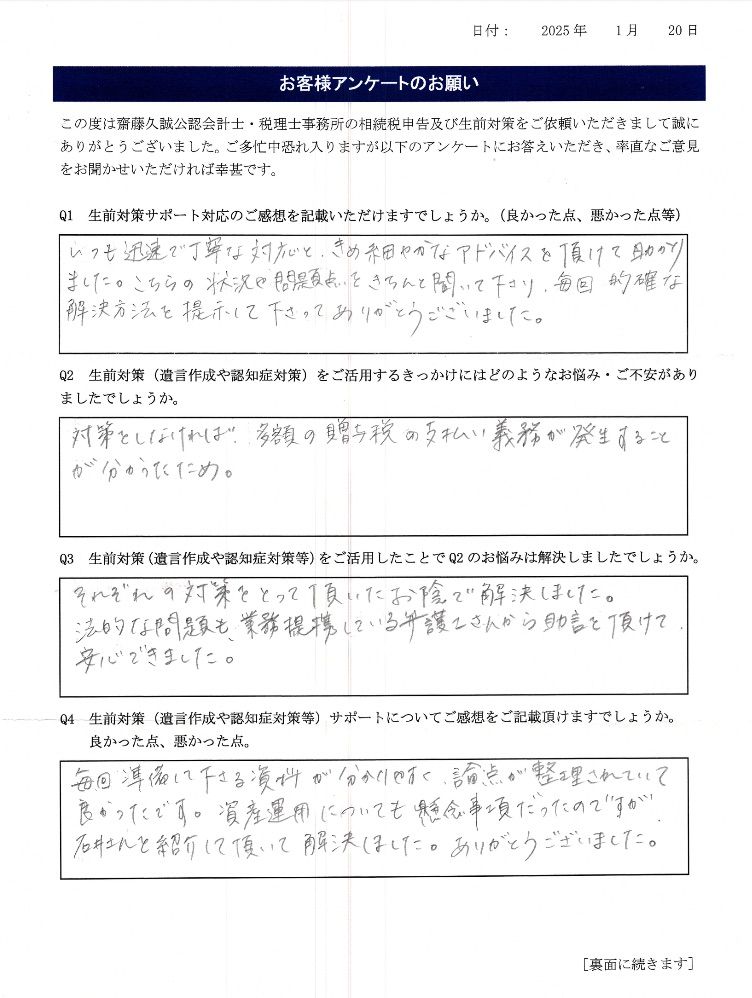 日付： 2025年 1月 20日
お客様アンケートのお願い
この度は齋藤久誠公認会計士・税理士事務所の相続税申告及び生前対策をご依頼いただきまして誠に
ありがとうございました。ご多忙中恐れ入りますが以下のアンケートにお答えいただき、率直なご意見
をお聞かせいただければ幸甚です。
Q1 生前対策サポート対応のご感想を記載いただけますでしょうか。（良かった点、悪かった点等）
いつも迅速で丁寧な対応と、きめ細やかなアドバイスを頂けて助かり
ました。こちらの状況や問題点をきちんと聞いて下さり、毎回的確な
解決方法を提示して下さってありがとうございました。
Q2 生前対策（遺言作成や認知症対策）をご活用するきっかけにはどのようなお悩み・ご不安があり
ましたでしょうか。
対策をしなければ、多額の贈与税の支払い義務が発生すること
が分かったため。
Q3 生前対策（遺言作成や認知症対策等）をご活用したことでQ2のお悩みは解決しましたでしょうか。
それぞれの対策をとって頂いたお陰で解決しました。
法的な問題も、業務提携している弁護士さんから助言を頂けて、
安心できました。
Q4 生前対策（遺言作成や認知症対策等）サポートについてご感想をご記載頂けますでしょうか。
良かった点、悪かった点。
毎回準備して下さる資料が分かりやすく、論点が整理されていて
良かったです。資産運用についても懸念事項だったのですが、
石井さんを紹介して頂いて解決しました。ありがとうございました。
［裏面に続きます］